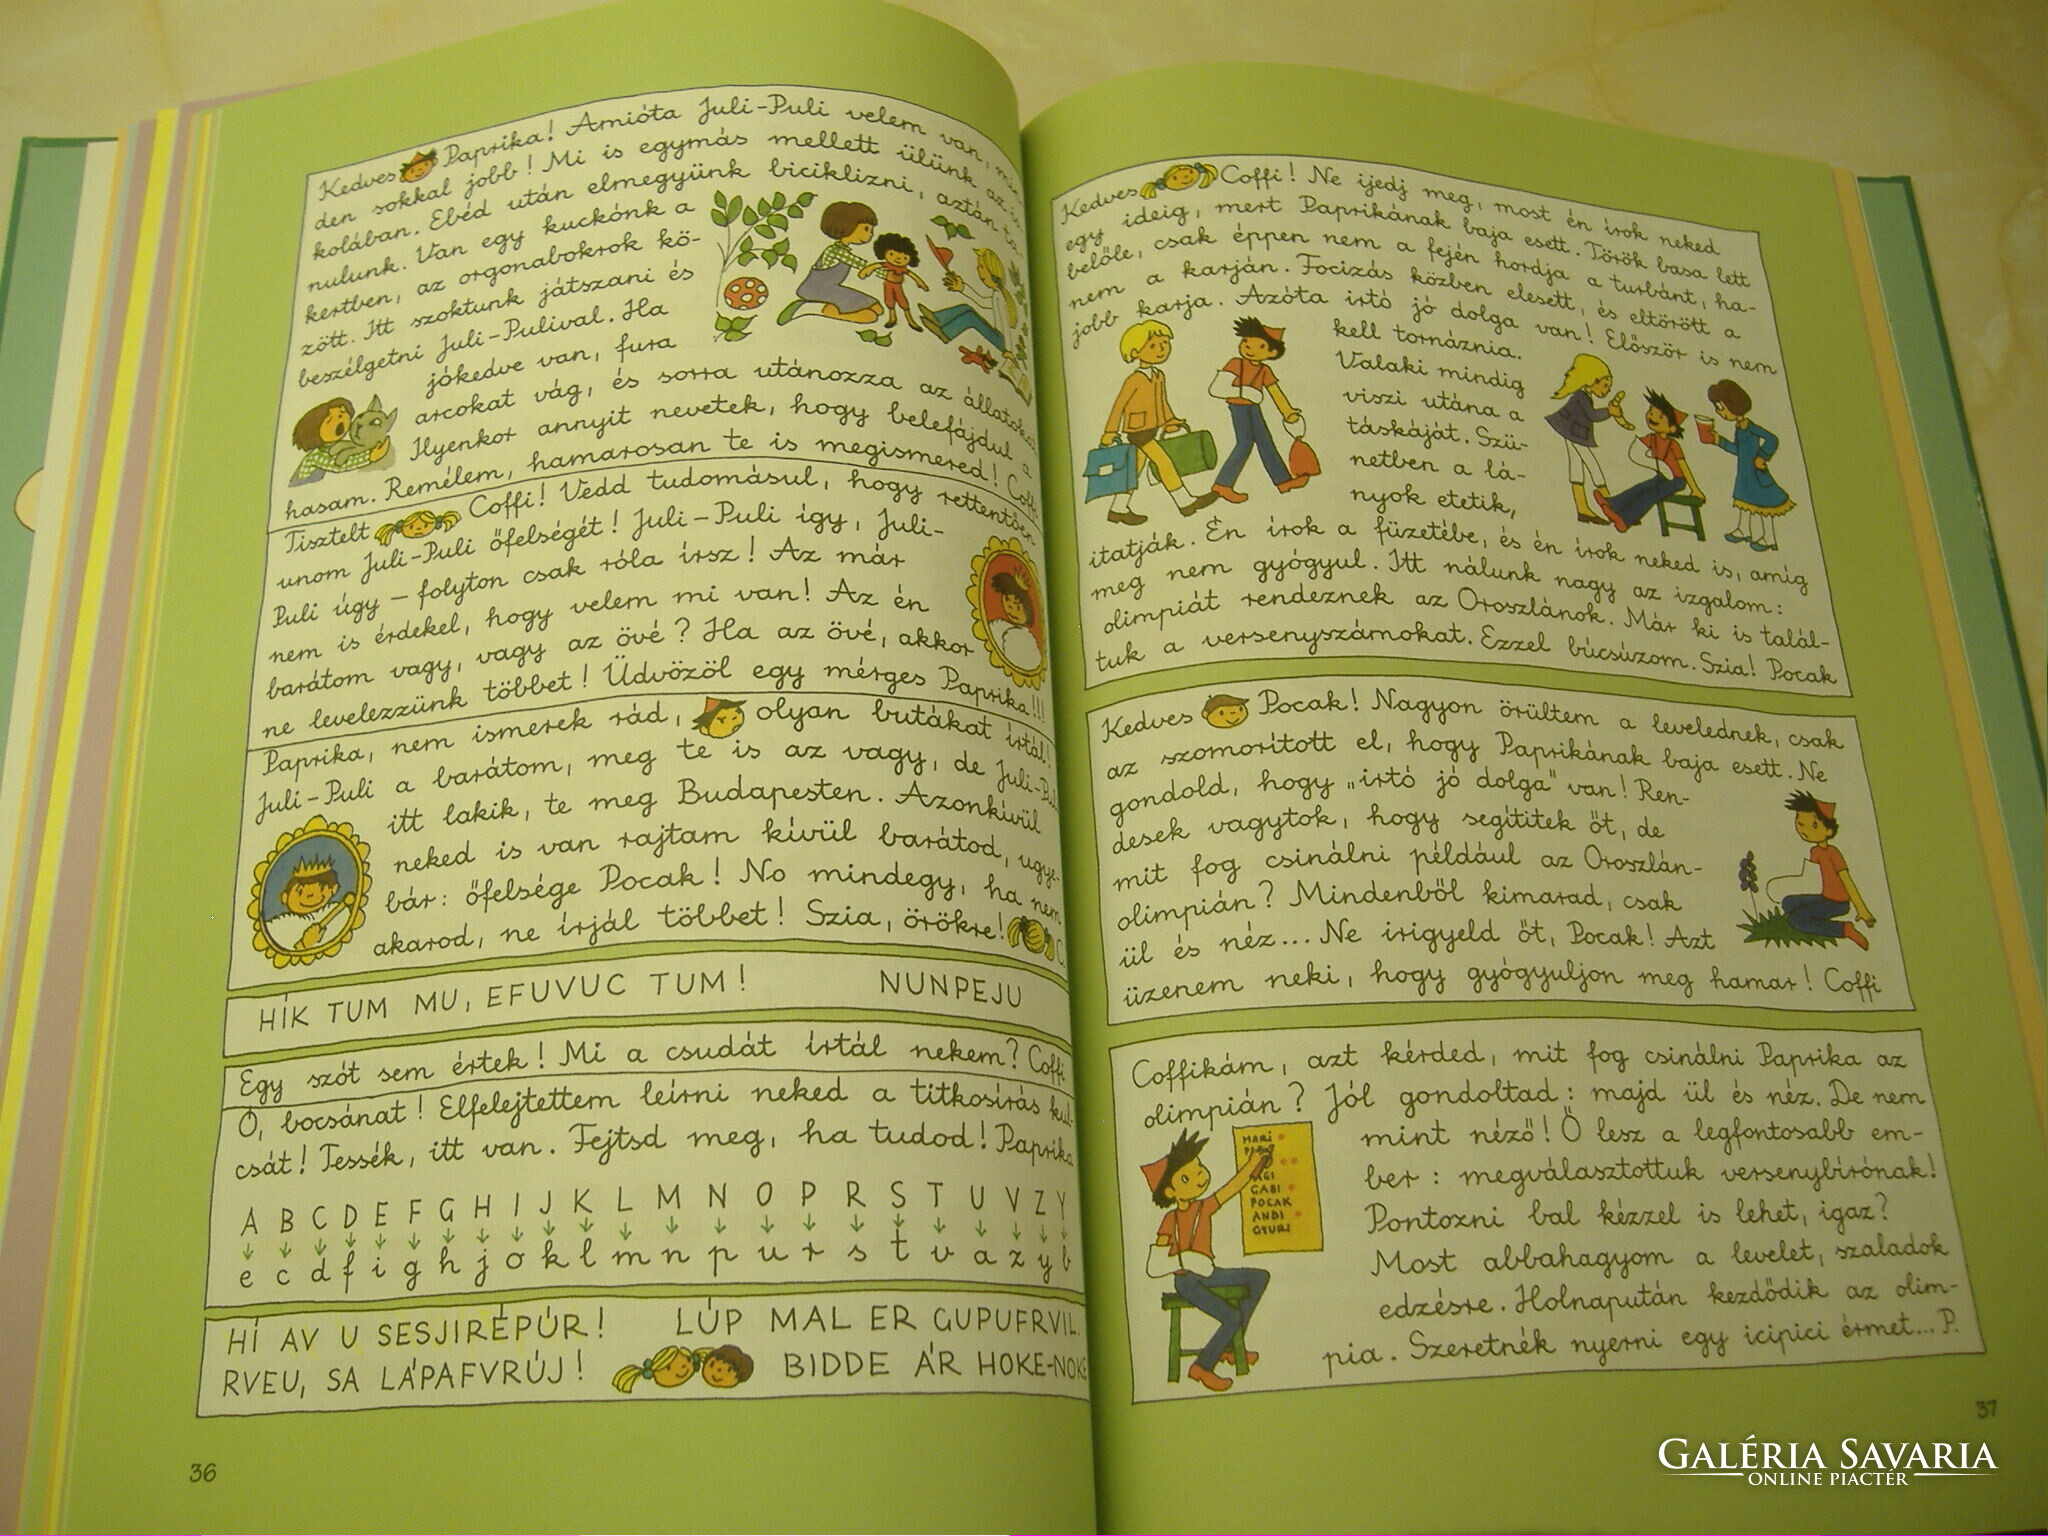 Kedves Paprika! Amióta Juli-Puli velem van,
den sokkal jobb! Mi is egymás mellett ülünk az is-
kolában. Ebéd után elmegyünk biciklizni, aztán ta-
nulunk. Van egy kuckónk a
kertben, az orgonabokrok kö-
zött. Itt szoktunk játszani és
beszélgetni Juli-Pulival. Ha
jókedve van, fura
arcokat vág, és sorra utánozza az állatokat.
Ilyenkor annyit nevetek, hogy belefájdul a
hasam. Remélem, hamarosan te is megismered! Coffi
Tisztelt Coffi! Vedd tudomásul, hogy rettentően
unom Juli-Puli őfelségét! Juli-Puli így, Juli-
Puli úgy – folyton csak róla írsz! Az már
nem is érdekel, hogy velem mi van! Az én
barátom vagy, vagy az övé? Ha az övé, akkor
ne levelezzünk többet! Üdvözöl egy mérges Paprika!!!
Paprika, nem ismerek rád, olyan butákat írtál!
Juli-Puli a barátom, meg te is az vagy, de Juli-Puli
itt lakik, te meg Budapesten. Azonkívül
neked is van rajtam kívül barátod, ugye-
bár: őfelsége Pocak! No mindegy, ha nem
akarod, ne írjál többet! Szia, örökre! C.
HÍK TUM MU, EFUVUC TUM! NUNPEJU
Egy szót sem értek! Mi a csudát írtál nekem? Coffi
Ó, bocsánat! Elfelejtettem leírni neked a titkosírás kul-
csát! Tessék, itt van. Fejtsd meg, ha tudod! Paprika
A B C D E F G H I J K L M N O P R S T U V Z Y
e c d f i g h j o k l m n p u r s t v a z y b
HÍ AV U SESJIRÉPÚR! LÚP MAL ER GUPUFRVIL.
RVEU, SA LÁPAFVRÚJ! BIDDE ÁR HOKE-NOKE
36
Kedves Coffi! Ne ijedj meg, most én írok neked
egy ideig, mert Paprikának baja esett. Török basa lett
belőle, csak éppen nem a fején hordja a turbánt, ha-
nem a karján. Focizás közben elesett, és eltörött a
jobb karja. Azóta irtó jó dolga van! Először is nem
kell tornáznia.
Valaki mindig
viszi utána a
táskáját. Szü-
netben a lá-
nyok etetik,
itatják. Én írok a füzetébe, és én írok neked is, amíg
meg nem gyógyul. Itt nálunk nagy az izgalom:
olimpiát rendeznek az Oroszlánok. Már ki is talál-
tuk a versenyszámokat. Ezzel búcsúzom. Szia! Pocak
Kedves Pocak! Nagyon örültem a levelednek, csak
az szomorított el, hogy Paprikának baja esett. Ne
gondold, hogy „irtó jó dolga" van! Ren-
desek vagytok, hogy segítitek őt, de
mit fog csinálni például az Oroszlán-
olimpián? Mindenből kimarad, csak
ül és néz... Ne irigyeld őt, Pocak! Azt
üzenem neki, hogy gyógyuljon meg hamar! Coffi
Coffikám, azt kérded, mit fog csinálni Paprika az
olimpián? Jól gondoltad: majd ül és néz. De nem
mint néző! Ő lesz a legfontosabb em-
ber: megválasztottuk versenybírónak!
Pontozni bal kézzel is lehet, igaz?
Most abbahagyom a levelet, szaladok
edzésre. Holnapután kezdődik az olim-
pia. Szeretnék nyerni egy icipici érmet... P.
MARI
GABI
POCAK
ANDI
GYURI
37
GALÉRIA SAVARIA
ONLINE PIACTÉR